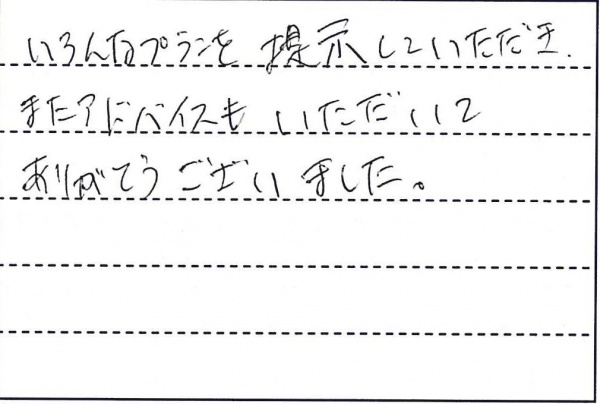 いろんなプランを 提示していただき、
またアドバイスも いただいて
ありがとうございました。